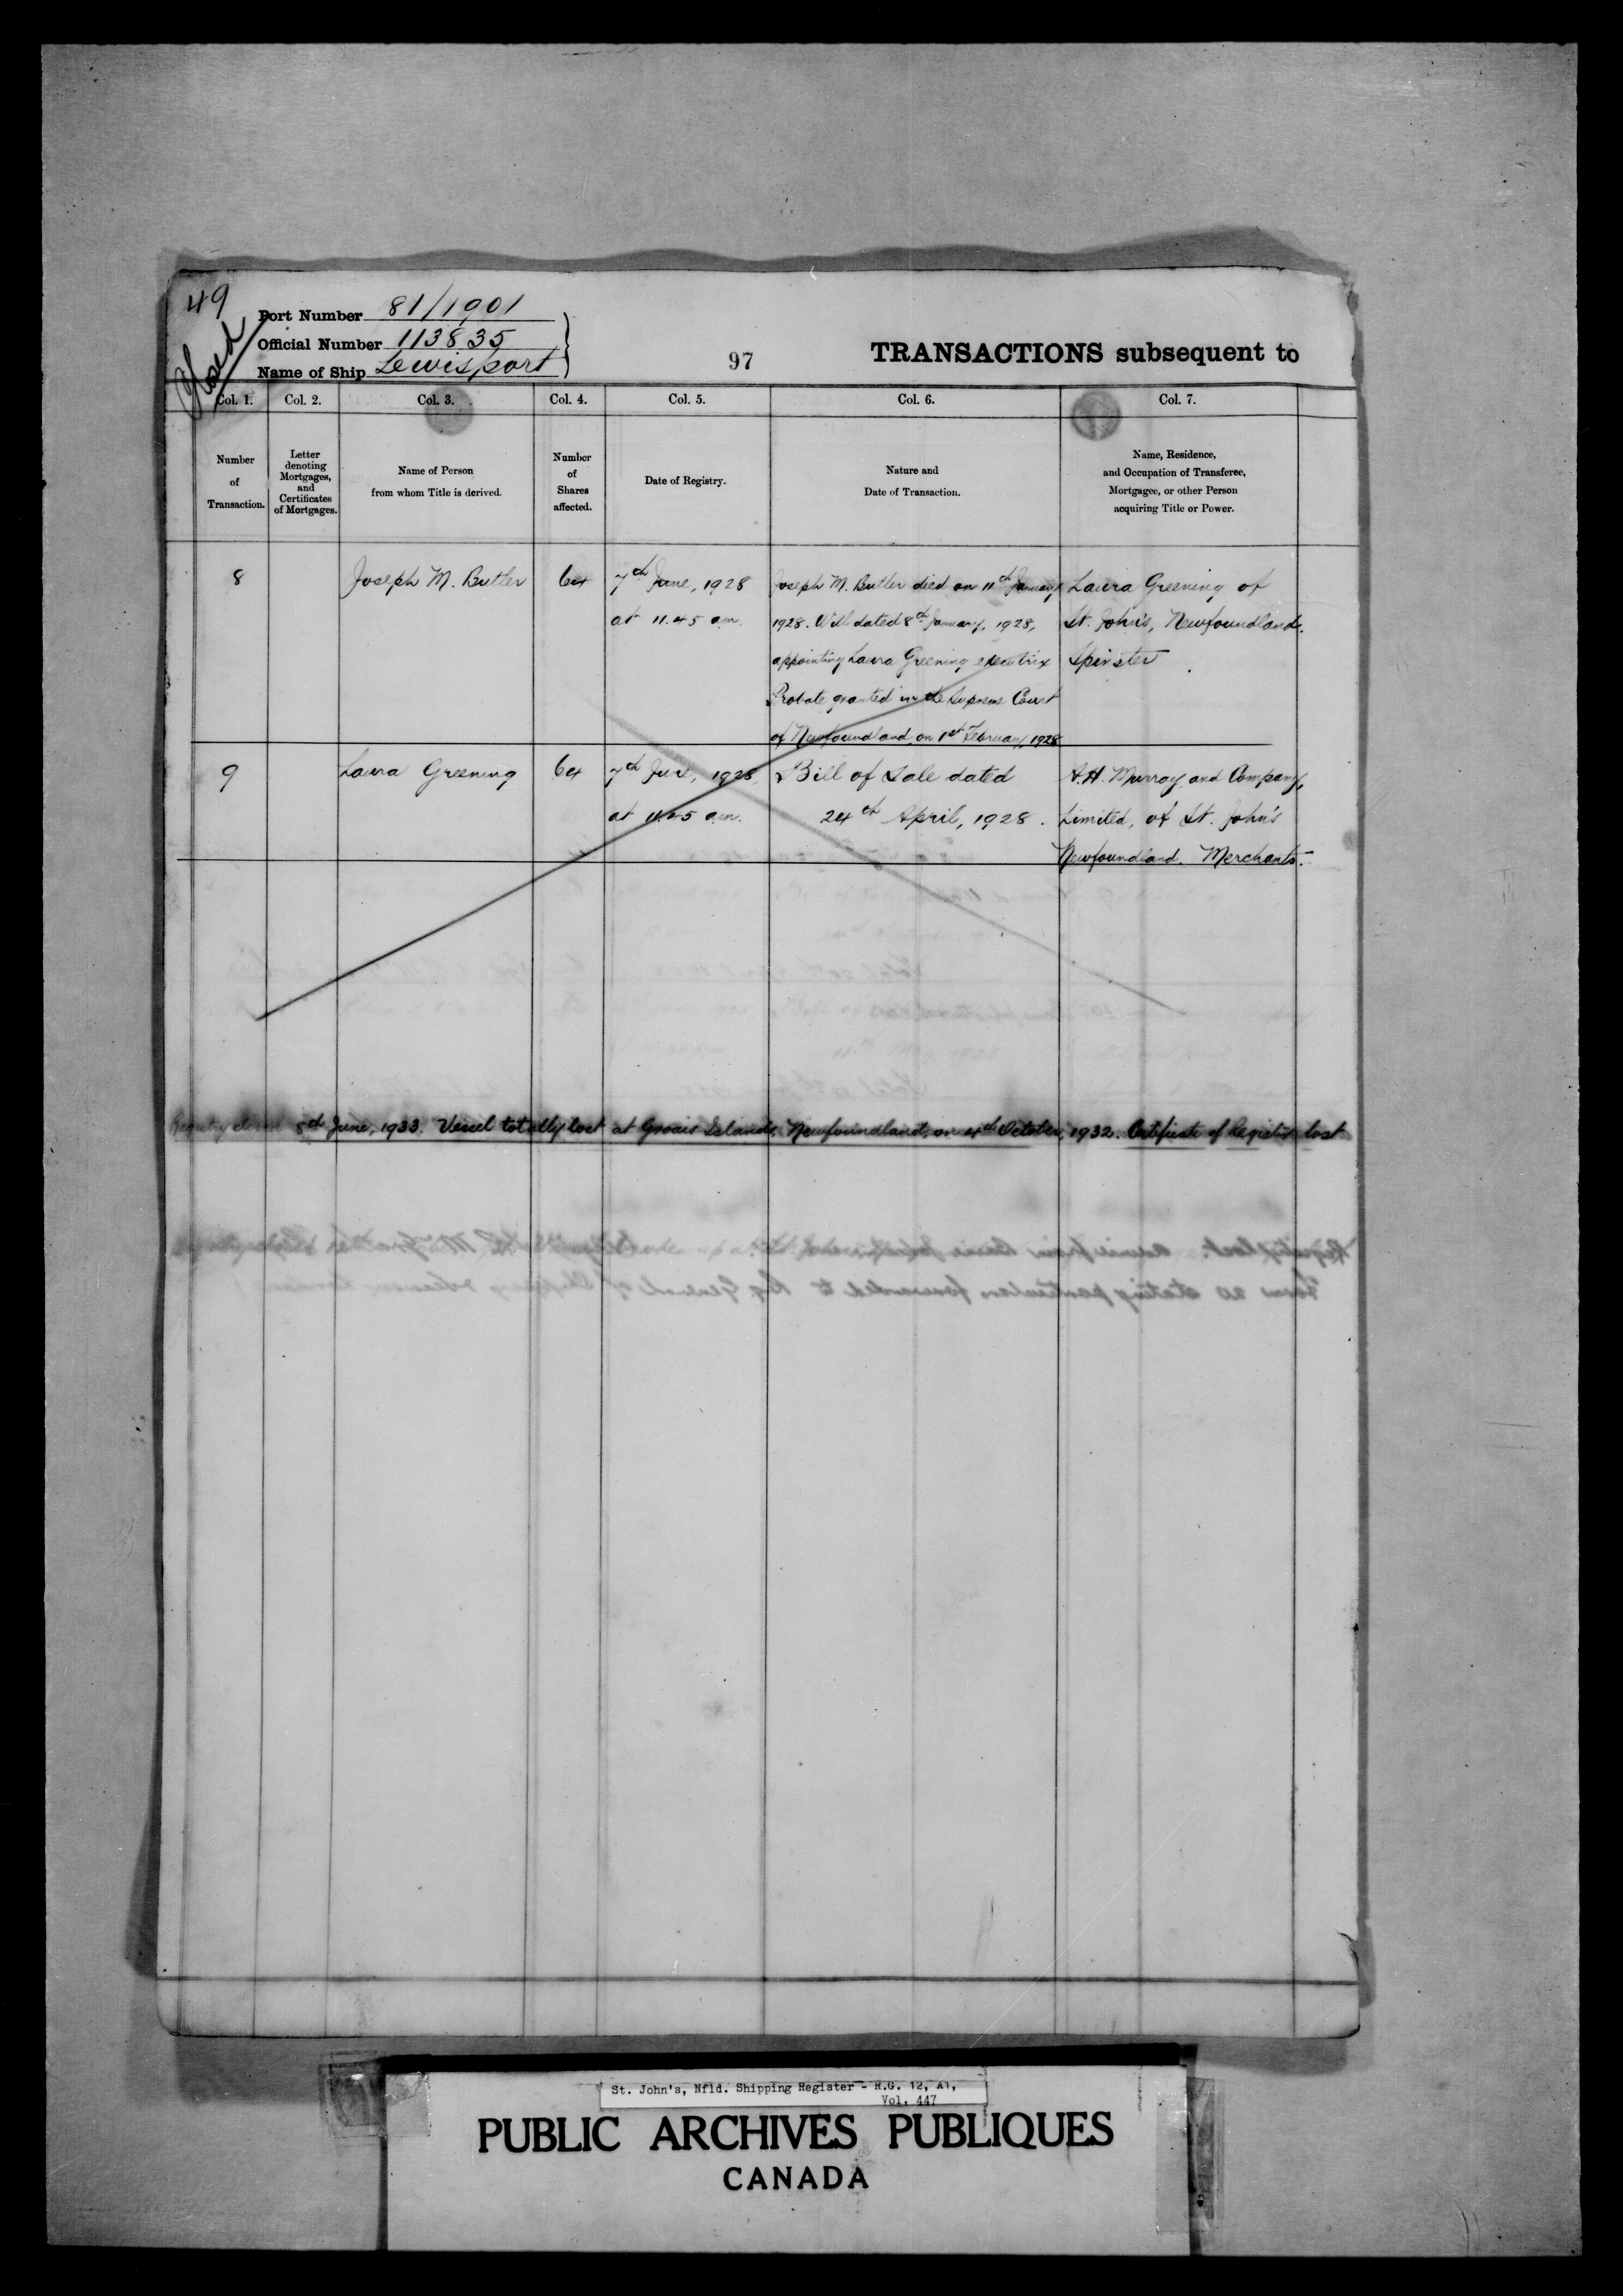 49
Port Number 81/1901
Official Number 113835
Name of Ship Lewisport
97
TRANSACTIONS subsequent to
Col. 1. Col. 2. Col. 3. Col. 4. Col. 5. Col. 6. Col. 7.
Number of Transaction.
Letter denoting Mortgages, and Certificates of Mortgages.
Name of Person from whom Title is derived.
Number of Shares affected.
Date of Registry.
Nature and Date of Transaction.
Name, Residence, and Occupation of Transferee, Mortgagee, or other Person acquiring Title or Power.
8 Joseph M. Butler 64 7th June, 1928 Joseph M. Butler died on 11th January Laura Greening of
at 11.45 a.m. 1928. Will dated 8th January, 1928, St. John's, Newfoundland.
appointing Laura Greening executrix Spinster
Probate granted in the Supreme Court
of Newfoundland on 1st February, 1928
9 Laura Greening 64 7th June, 1928, Bill of Sale dated A.H. Murray and Company,
at 11.45 a.m. 24th April, 1928. Limited, of St. John's
Newfoundland. Merchants.
Registry closed 8th June, 1933. Vessel totally lost at Groais Islands, Newfoundland, on 4th October, 1932. Certificate of Registry lost
St. John's, Nfld. Shipping Register - R.G. 12, A1,
Vol. 447
PUBLIC ARCHIVES PUBLIQUES
CANADA